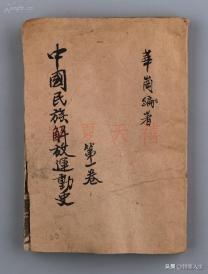 華崗編著
中國民族解放運動史
第一卷